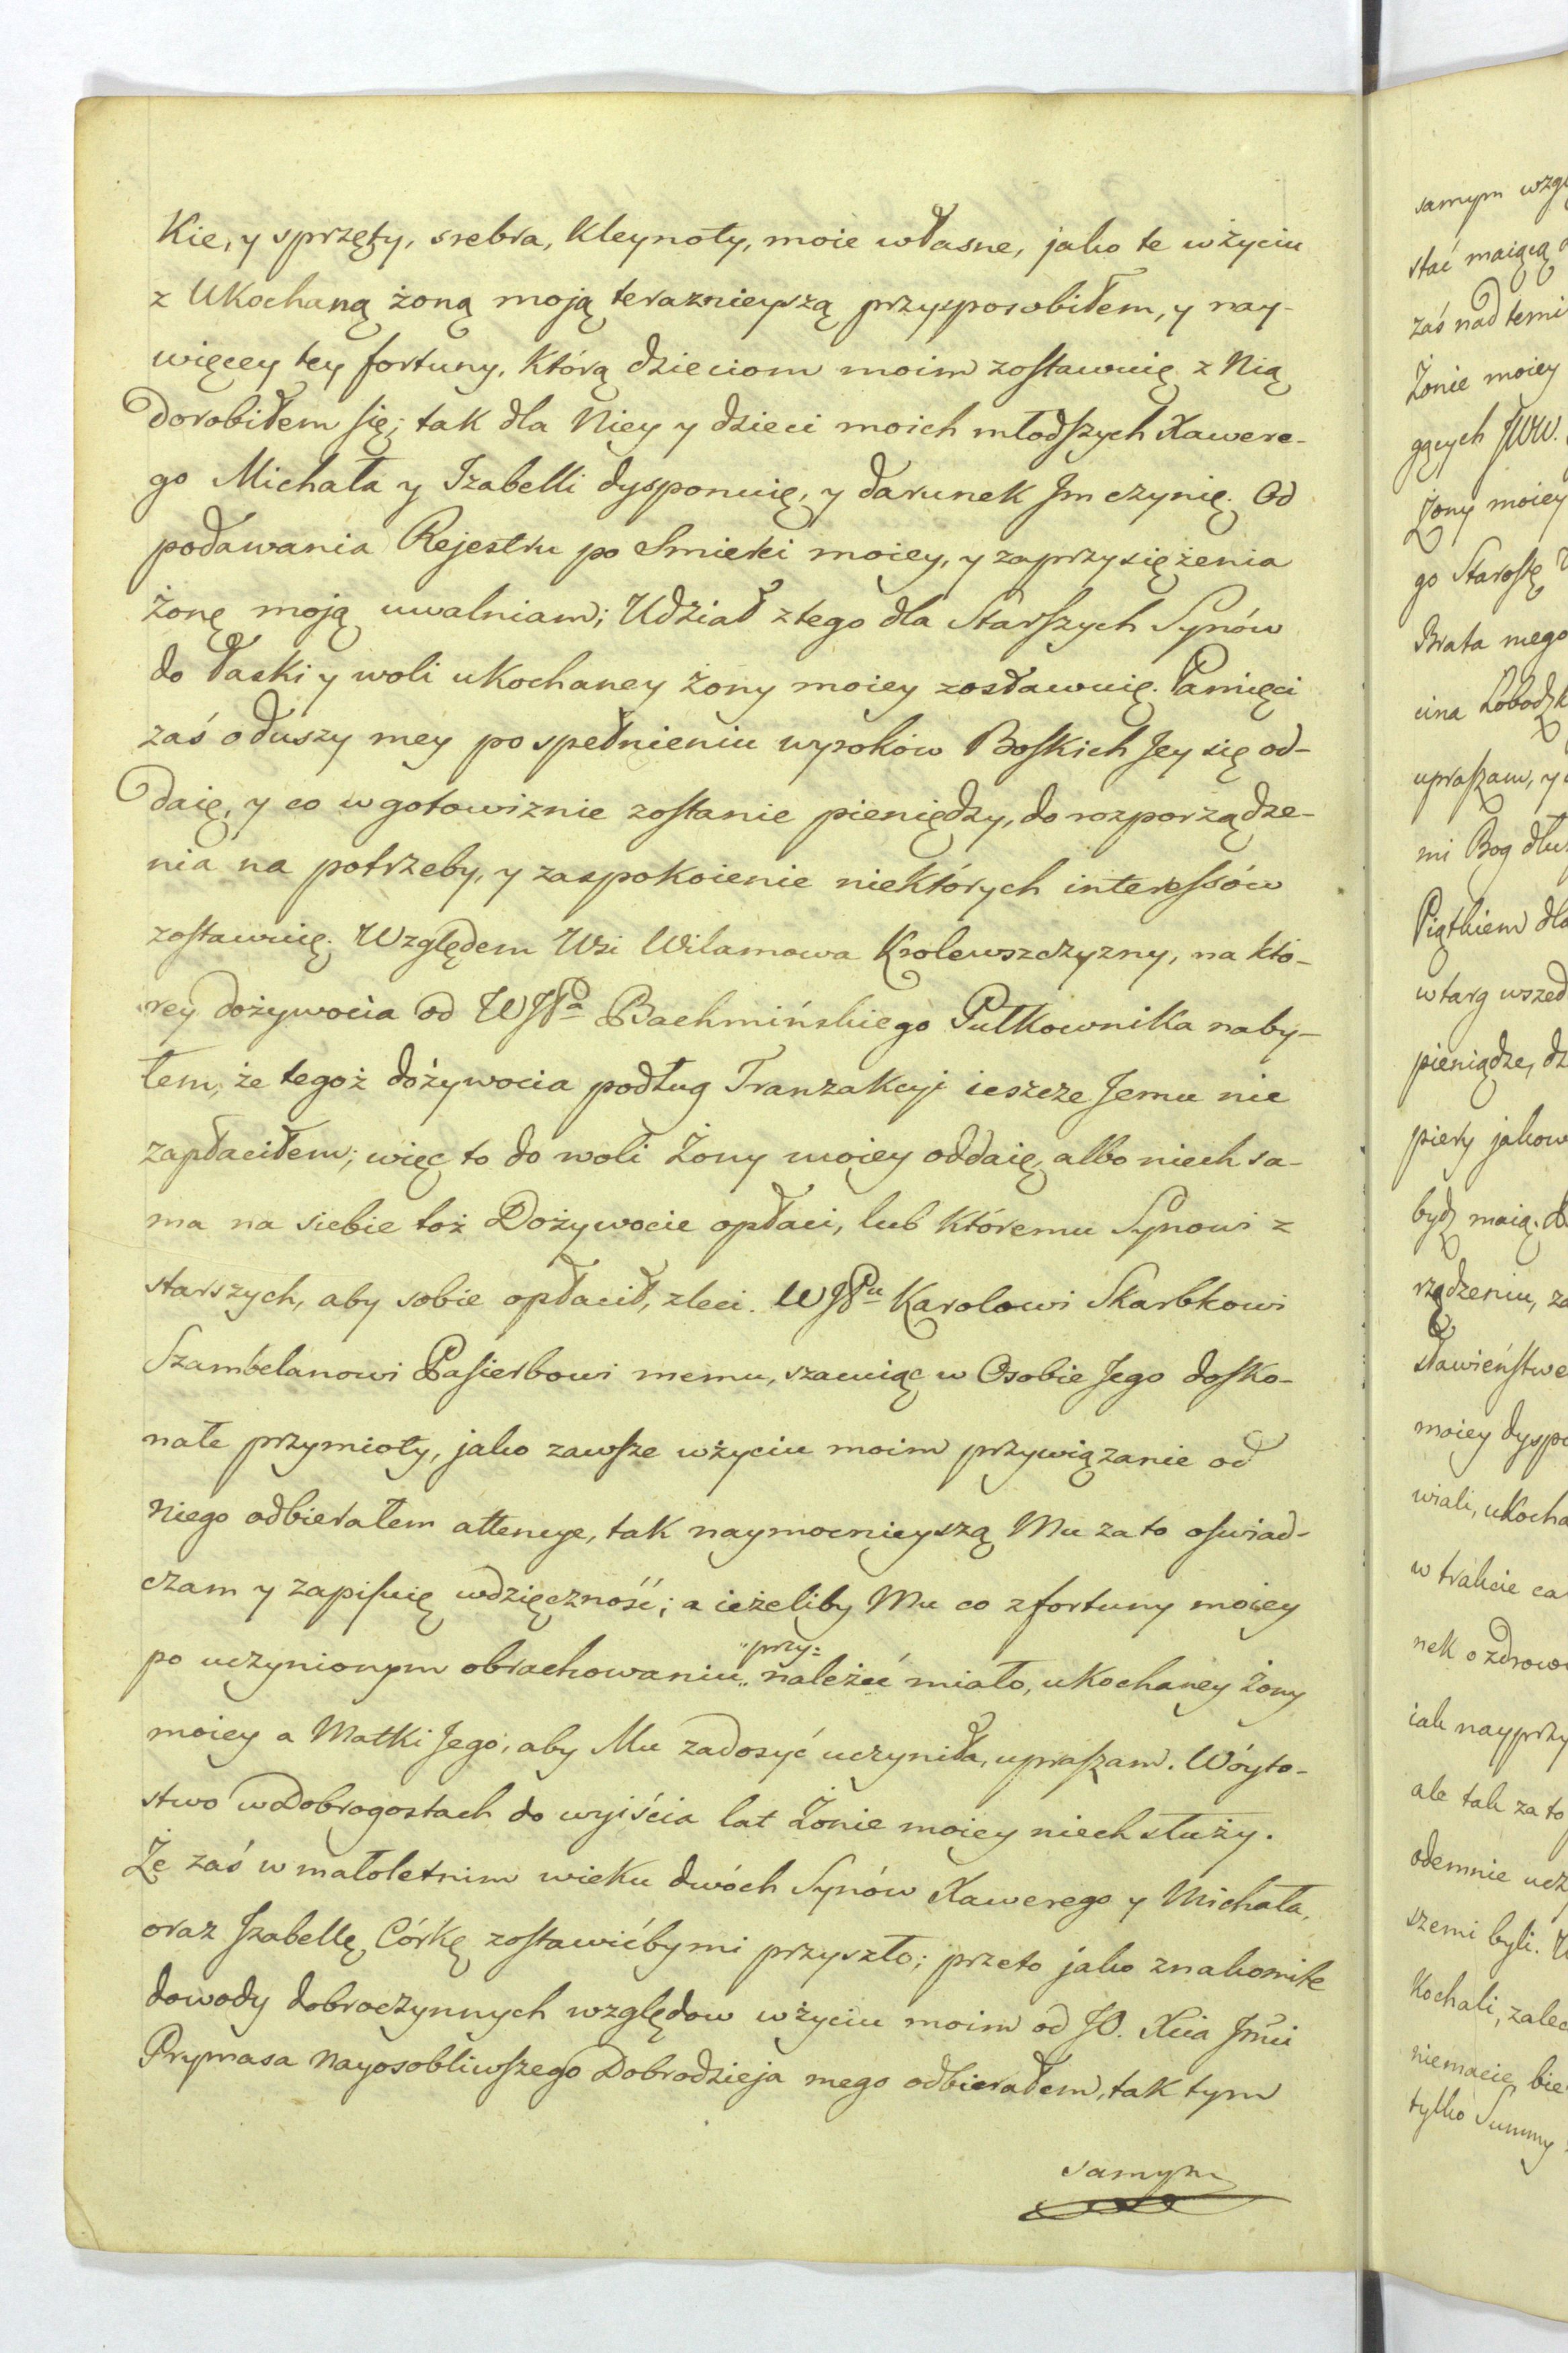 Kie, y sprzęty, srebra, Kleynoty, moie własne, jako te w życiu
z Ukochaną żoną moją teraznieyszą przysposobiłem, y nay-
więcey tey fortuny, Którą dzieciom moim zostawuię z Nią
Dorobiłem się; tak dla Niey y dzieci moich młodszych Xawere-
go Michała y Izabelli dysponuię, y darunek Jm czynię. Od
podawania Rejestru po Smierci moiey, y zaprzysiężenia
żonę moją uwalniam; Udział z tego dla Starszych Synów
do łaski y woli ukochaney żony moiey zostawuię. Pamięci
zaś o duszy mey po spełnieniu wyroków Boskich Jey się od-
Daię, y co w gotowiznie zostanie pieniędzy, do rozporządze-
nia na potrzeby, y zaspokoienie niektórych interessów
zostawuię. Względem Wsi Wilamowa Krolewszczyzny, na któ-
rey dożywocia od WJPa Bachmińskiego Pułkownika naby-
łem, że tegoż dożywocia podług Tranzakcyi ieszcze Jemu nie
zapłaciłem; więc to do woli Żony moiey oddaię, albo niech sa-
ma na siebie toż Dożywocie opłaci, lub Któremu Synowi z
starszych, aby sobie opłacił, zleci. WJPu Karolowi Skarbkowi
Szambelanowi Pasierbowi memu, szacuiąc w Osobie Jego dosko-
nałe przymioty, jako zawsze w życiu moim przywiązanie od
Niego odbierałem attencye, tak naymocnieyszą Mu za to oswiad-
czam y zapisuię wdzięczność; a ieżeliby Mu co z fortuny moiey
po uczynionym obrachowaniu „przy= należeć miało, ukochaney Żony
moiey a Matki Jego, aby Mu zadosyć uczyniła, upraszam. Wóyto-
stwo w Dobrogostach do wyiścia lat Żonie moiey niech służy.
Że zaś w małoletnim wieku dwóch Synów Xawerego y Michała,
oraz Jzabellę Córkę zostawićby mi przyszło; przeto jako znakomite
dowody dobroczynnych względow w życiu moim od JO. Xcia Jmći
Prymasa Nayosobliwszego Dobrodzieja mego odbierałem, tak tym
samym
samym
stać maiącą
zaś nad temi
Żonie moiey
gących JWW.
Żony moiey
go Starostę
Brata mego
cina
upraszam, y
mi Bog
Piątkiem
w targ
pieniądze,
jakow
bydź maią.
rządzeniu,
moiey
wiali,
w trakcie
nek o
iak
ale tak za to
odemnie
szemi byli.
Kochali,
niemacie,
tylko Summy